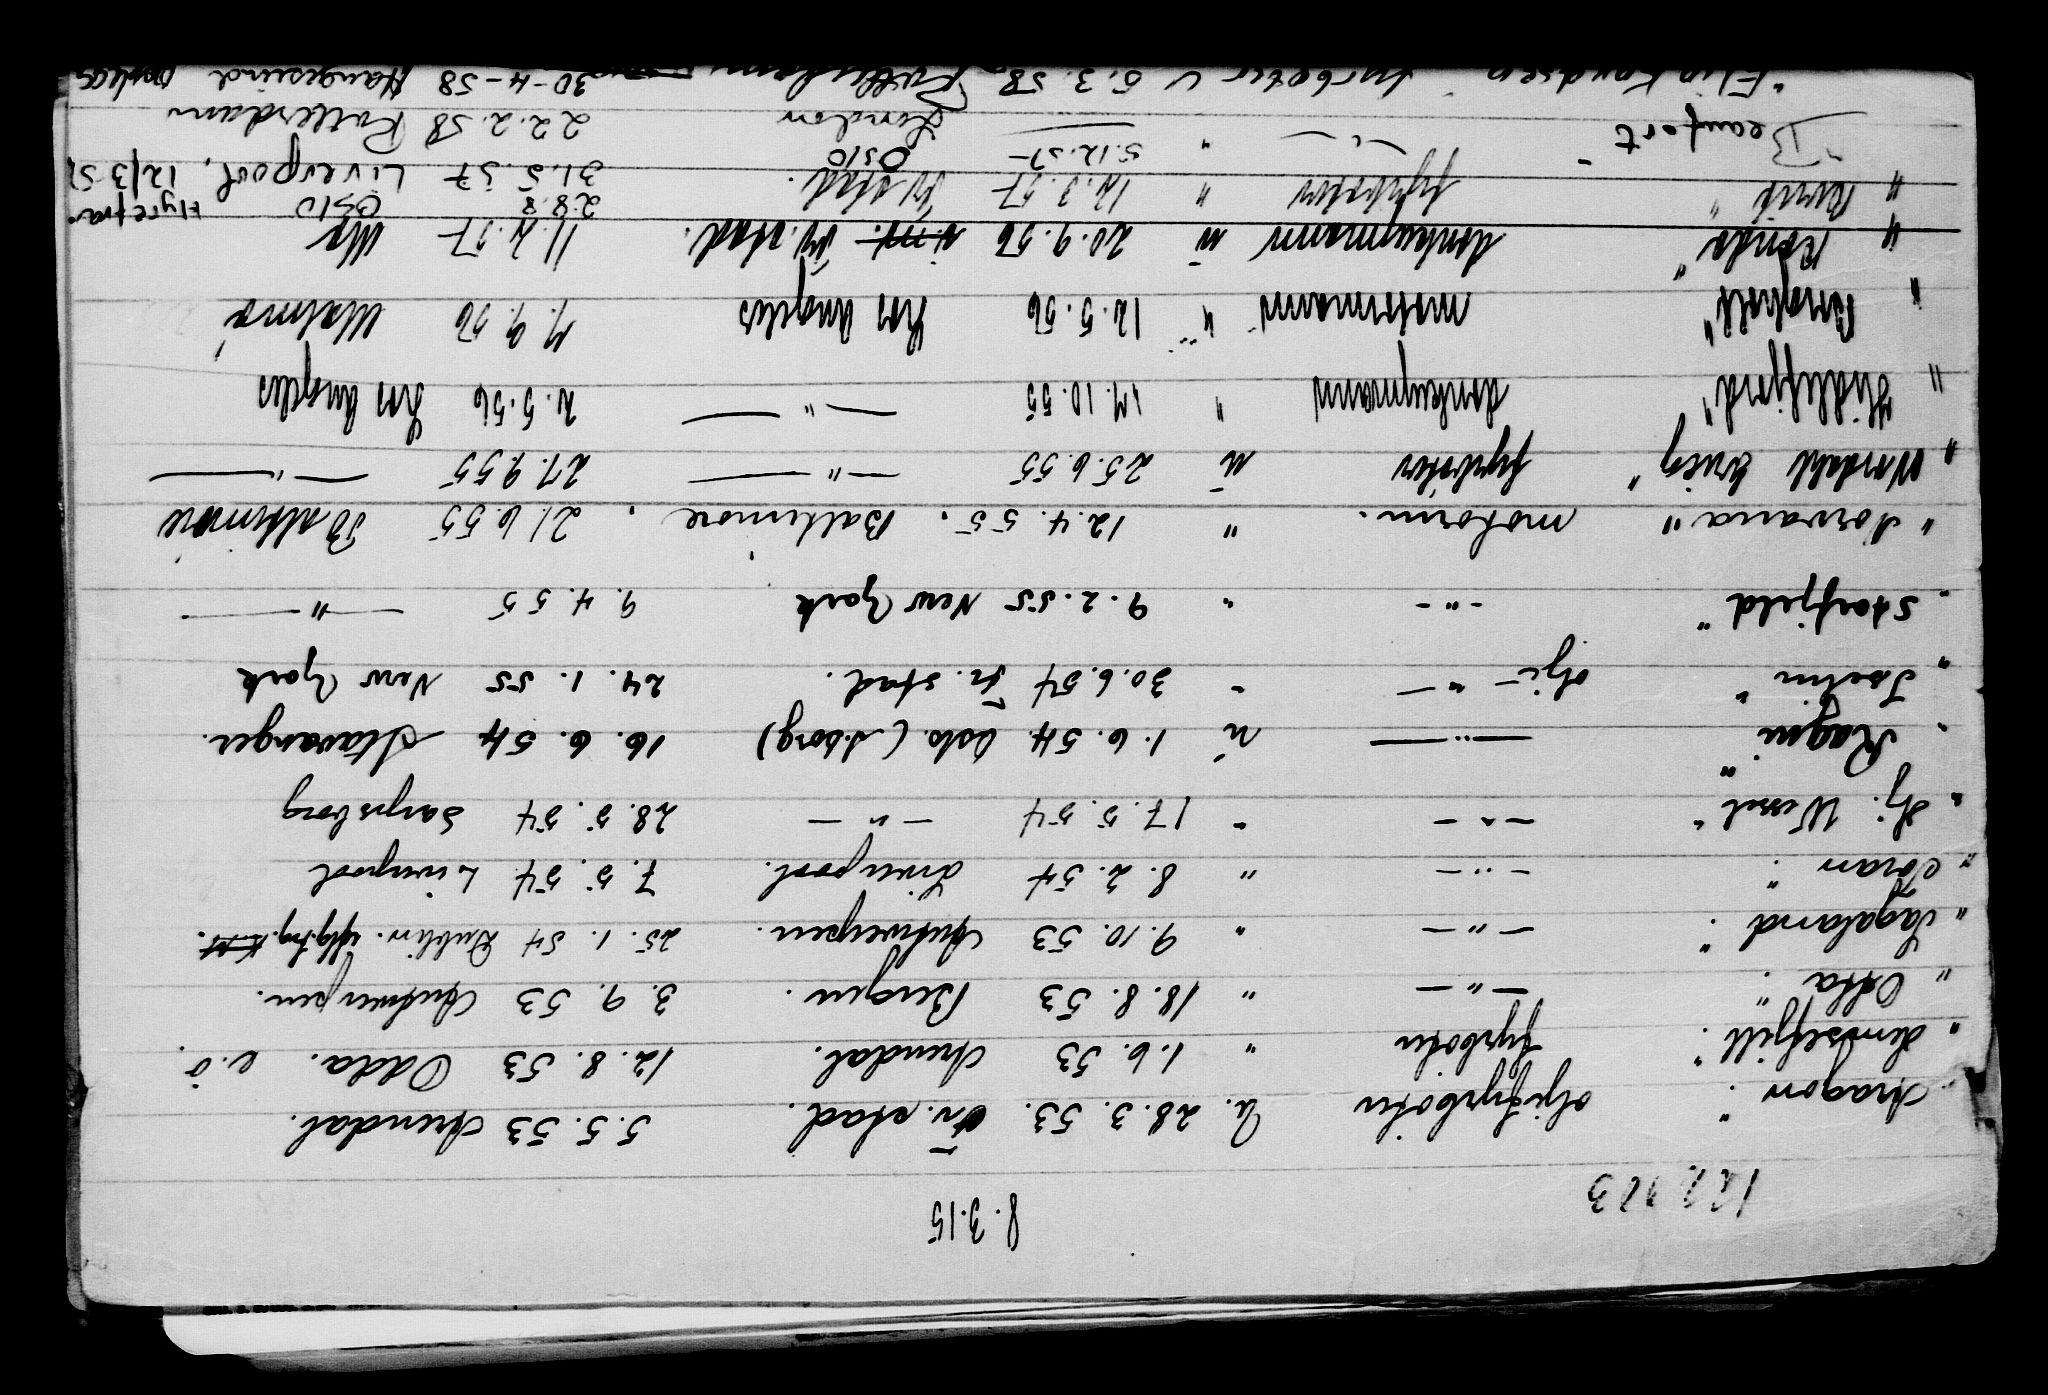 122723
8.3.15
Aragon" oljefyrbøter u. 28.3.53. Fr.stad. 5.5.53 Arendal.
" Lundefjell". fyrbøter " 1.6.53 Arendal. 12.8.53 Odda. e.ö.
" Osta". — " — " 18.8.53 Bergen. 3.9.53 Antwerpen.
" Sagaland". — " — " 9.10.53 Antwerpen. 25.1.54 Dublin.
" Toran". — " — " 8.2.54 Liverpool. 7.5.54 Liverpool
" Hj. Wessel" — " — " 17.5.54 — " — 28.5.54 Sarpsborg
" Ragni". — " — u 1.6.54 Oslo. (S.borg) 16.6.54 Stavanger.
" Iselin" olje — " — " 30.6.54 Fr.stad. 24.1.55 New York
" Storfjeld" - " - " 9.2.55 New York 9.4.55 — " —
" Norvana" motorm. " 12.4.55. Baltimore. 21.6.55 Baltimore
" Nordahl Grieg" fyrbøter u 25.6.55 — " — 27.9.55 — " —
" Hidlefjord" donkeymann " 17.10.55 — " — 2.5.56 Los Angeles
" motormann " 12.5.56 Los Angeles 7.9.56 Malmø
" Ronda" donkeymann u 20.9.56 Fr.stad. 11.2.57
28.8 Oslo Hyre fra
" fyrbøter " 12.3.57 Fr.stad. 31.5.57 Liverpool, 12/3 57
5.12.57 Oslo
" Beaufort" — " — " — London 22.2.58 Rotterdam
" Elin Knudsen" fyrbøter u 5.3.58 Rotterdam 30-4-58 Haugesund opplag